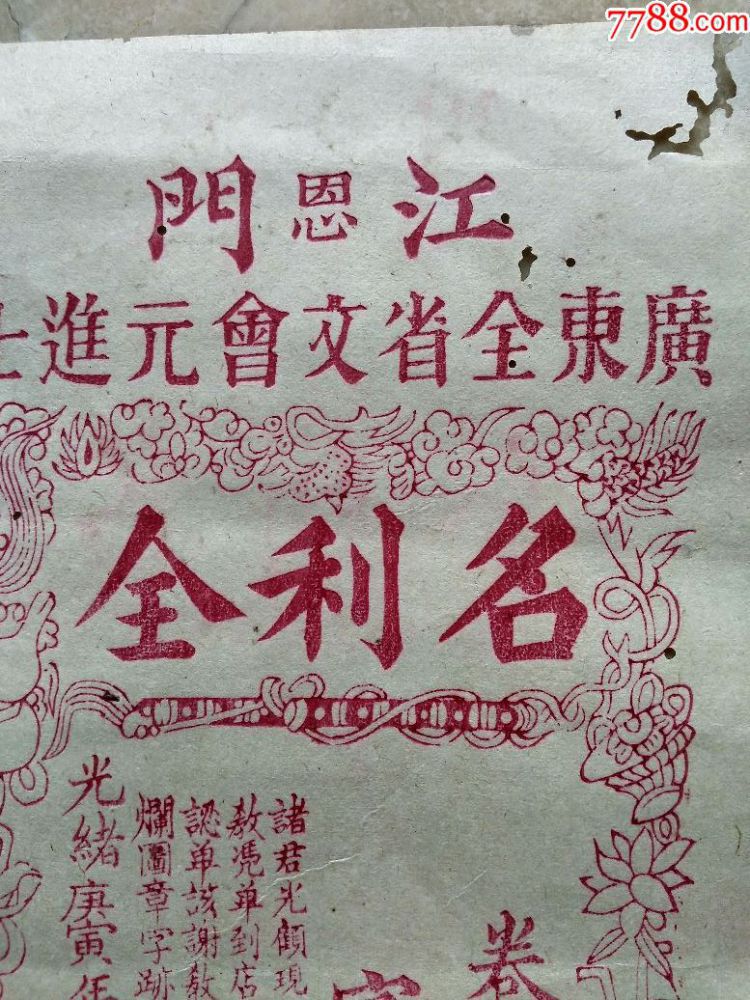 7788.com
江恩門
廣東全省文會元進
名利全
卷
諸君光顧現
教憑单到店
認单該謝教
爛圖章字跡
光緒庚寅年